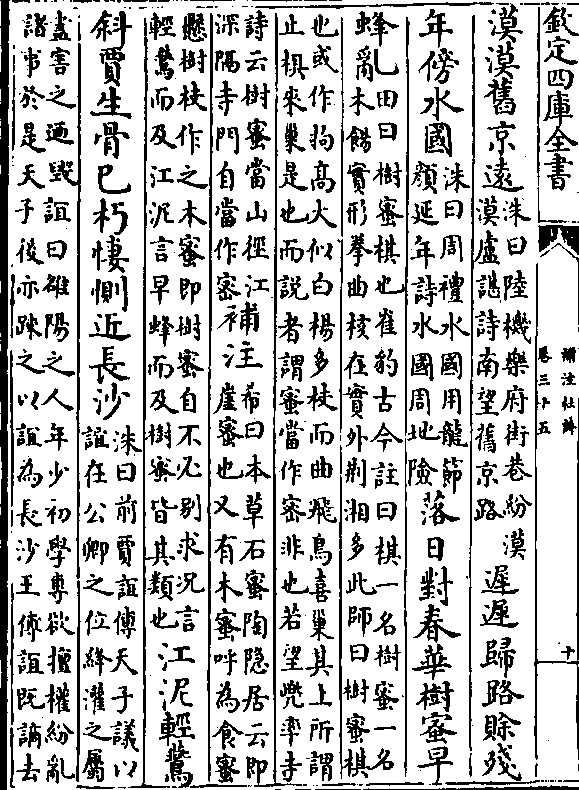 欽定四庫全書
補注杜詩
卷三十五
十
漠漠舊京遠
洙曰陸機樂府街巷紛漠
漠盧諶詩南望舊京路
遲遲歸路賖殘
年傍水國
洙曰周禮水國用龍節
顔延年詩水國周地險
落日對春華樹蜜早
蜂亂
田曰樹蜜棋也崔豹古今註曰棋一名樹蜜一名
木餳實形拳曲核在實外荆湘多此師曰樹蜜棋
也或作枸高大似白楊多枝而曲飛鳥喜巢其上所謂
止棋來巢是也而説者謂蜜當作密非也若望兜率寺
詩云樹蜜當山徑江
深隔寺門自當作密
補注
希曰本草石蜜陶隐居云即
崖蜜也又有木蜜呼為食蜜
懸樹枝作之木蜜即樹蜜自不必别求况言
輕鷰而及江泥言早蜂而及樹蜜皆其類也
江泥輕鷰
斜賈生骨已朽悽惻近長沙
洙曰前賈誼傳天子議以
誼在公卿之位絳灌之屬
盡害之廼毀誼曰雒陽之人年少初學專欲擅權紛亂
諸事於是天子後亦踈之以誼為長沙王傅誼既謫去